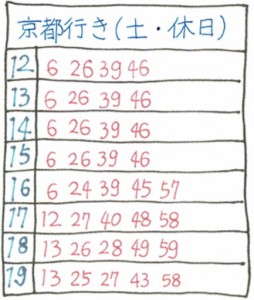 京都行き(土・休日)
12 6 26 39 46
13 6 26 39 46
14 6 26 39 46
15 6 26 39 46
16 6 24 39 45 57
17 12 27 40 48 58
18 13 26 28 49 59
19 13 25 27 43 58